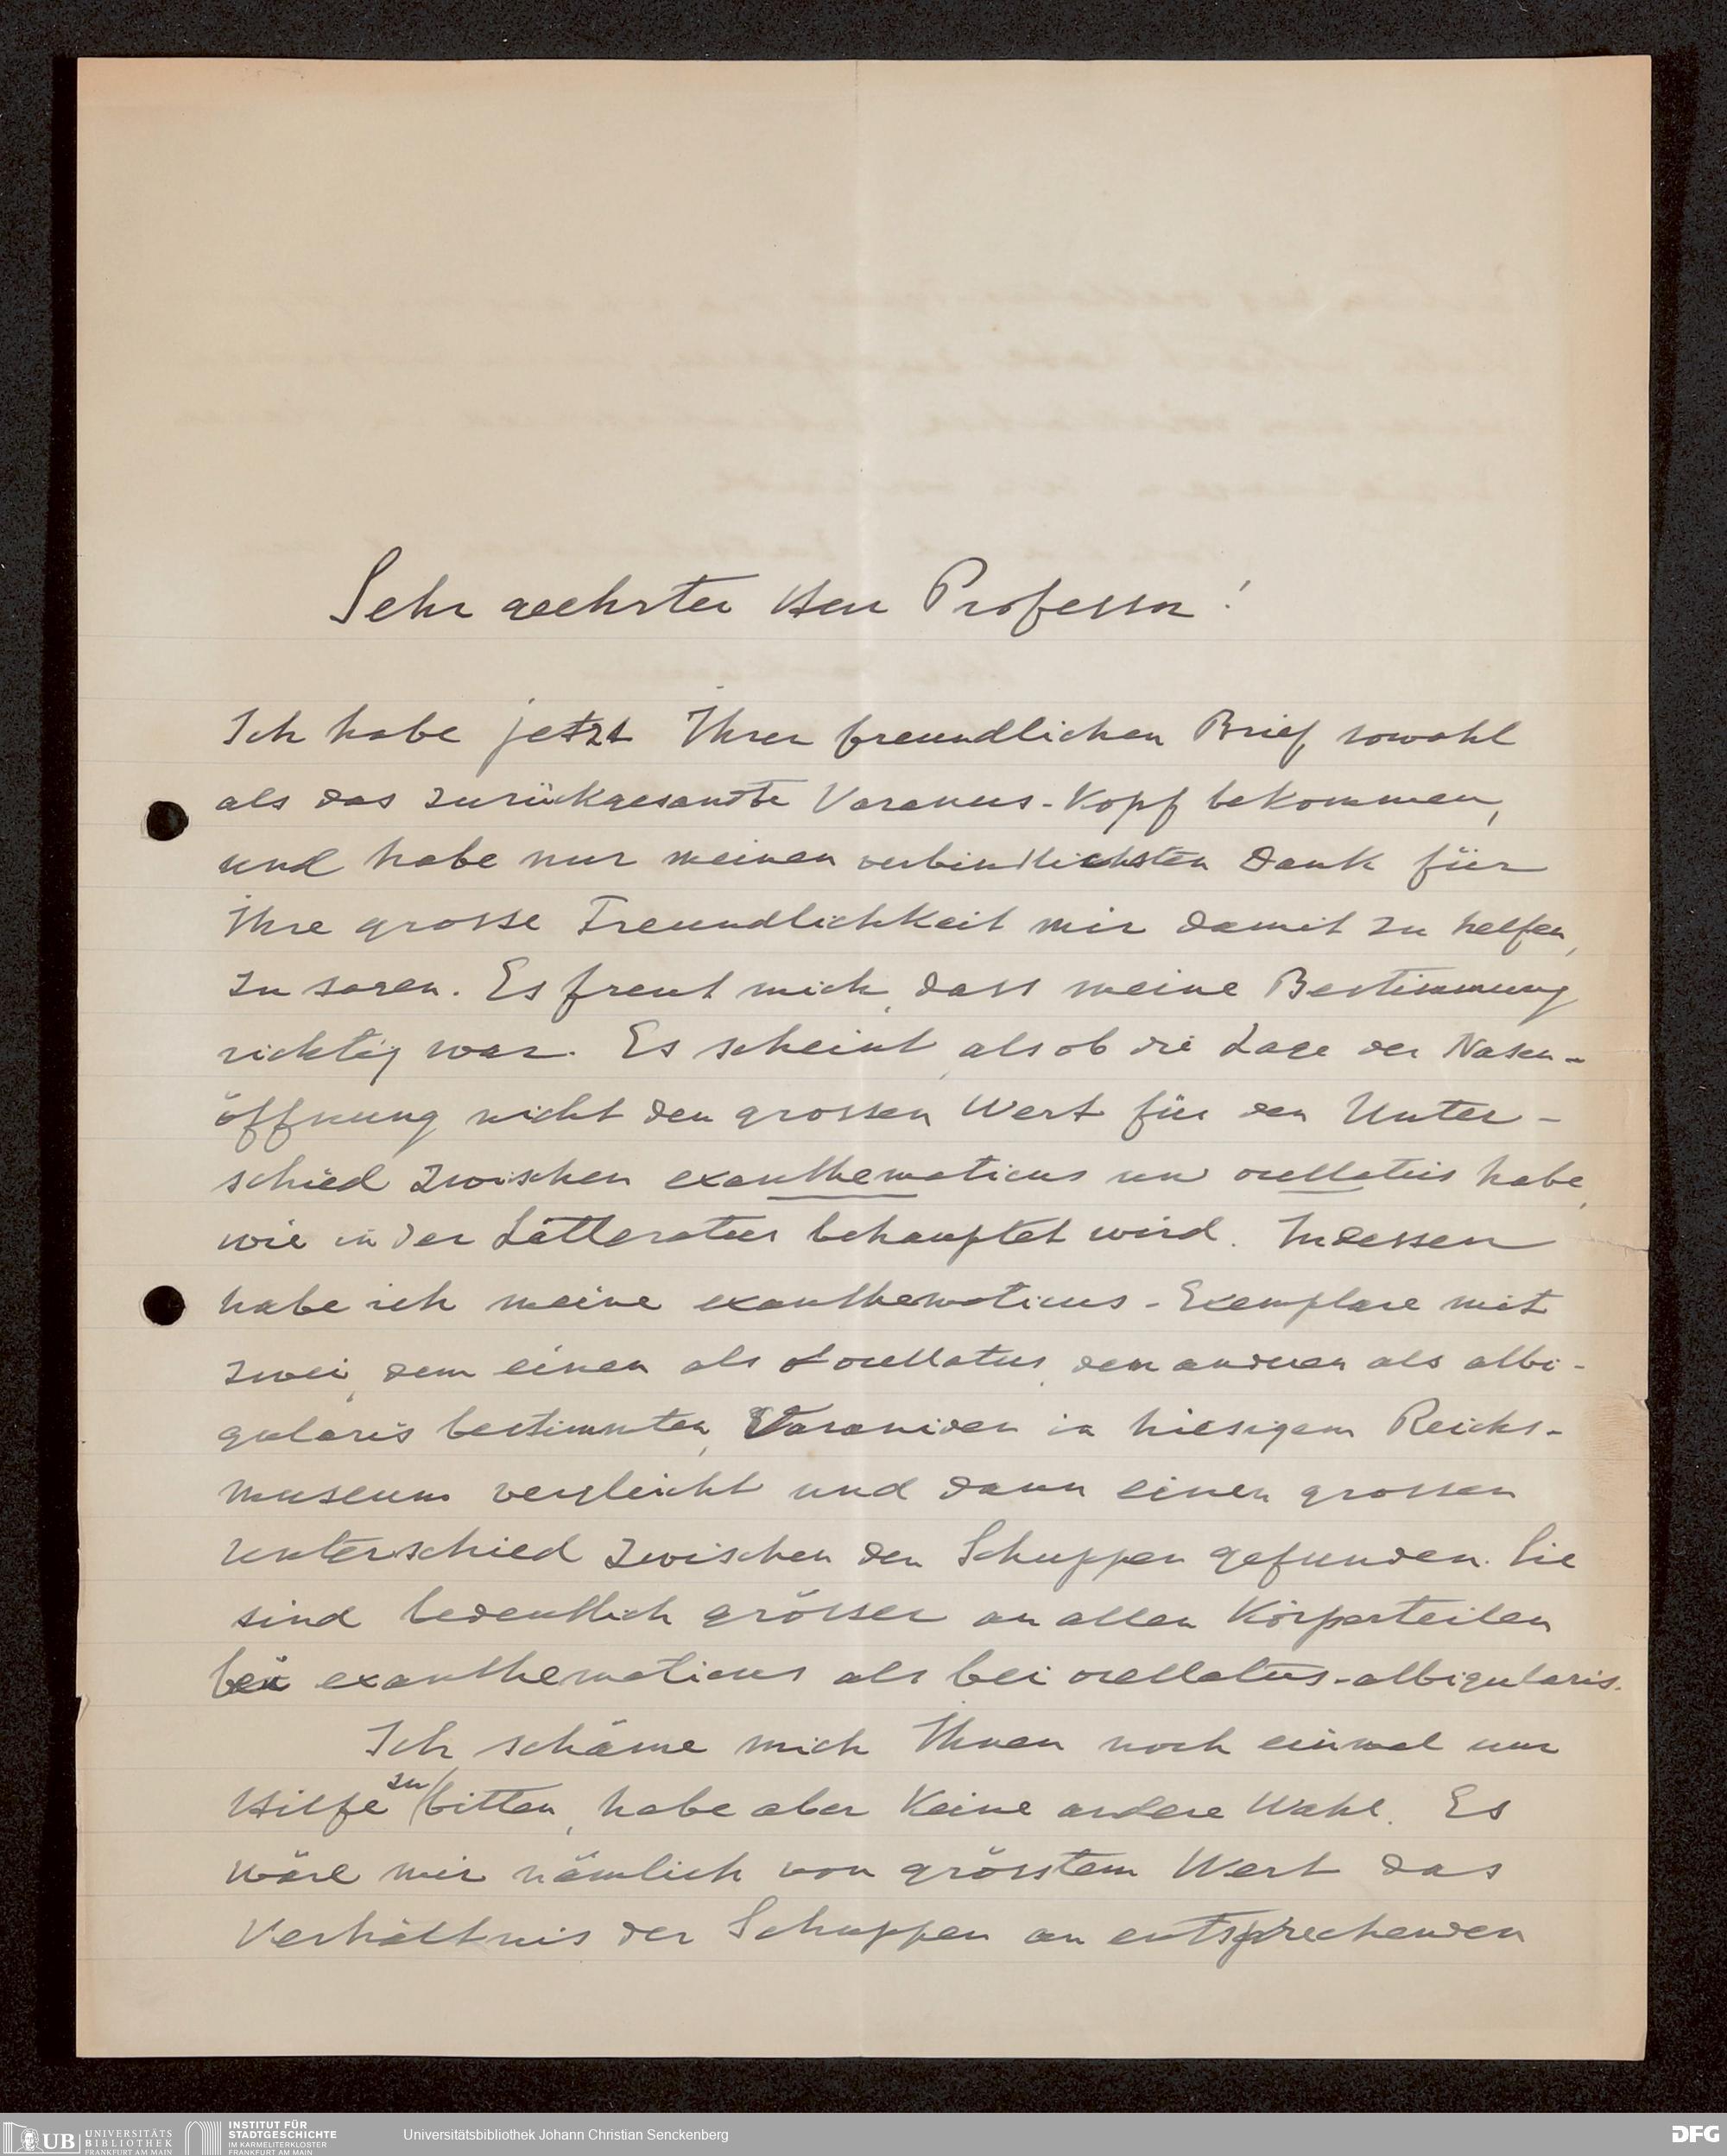 Sehr geehrter Herr Professor!
Ich habe jetzt Ihren freundlichen Brief sowohl
als das zurückgesandte Varanus-Kopf bekommen,
und habe nur meinen verbindlichsten Dank für
Ihre grosse Freundlichkeit mir damit zu helfen,
zu sagen. Es freut mich, dass meine Bestimmung
richtig war. Es scheint, als ob die Lage der Nasen-
öffnung nicht den grossen Wert für den Unter-
schied zwischen exanthematicus und ocellatus habe,
wie in der Litteratur behauptet wird. Indessen
habe ich meine exanthematicus-Exemplare mit
zwei, dem einen als ocellatus, dem anderen als albi-
gularis bestimmten, Varaniden in hiesigem Reichs-
museum vergleicht und dann einen grossen
Unterschied zwischen den Schuppen gefunden. Sie
sind bedeutlich grösser an allen Körperteilen
bei exanthematicus als bei ocellatus-albigularis.
Ich schäme mich Ihnen noch einmal um
Hilfe zu bitten, habe aber keine andere Wahl. Es
wäre mir nämlich von grösstem Wert das
Verhältnis der Schuppen an entsprechenden
UB UNIVERSITÄTS
BIBLIOTHEK
FRANKFURT AM MAIN
INSTITUT FÜR
STADTGESCHICHTE
IM KARMELITERKLOSTER
FRANKFURT AM MAIN
Universitätsbibliothek Johann Christian Senckenberg
DFG